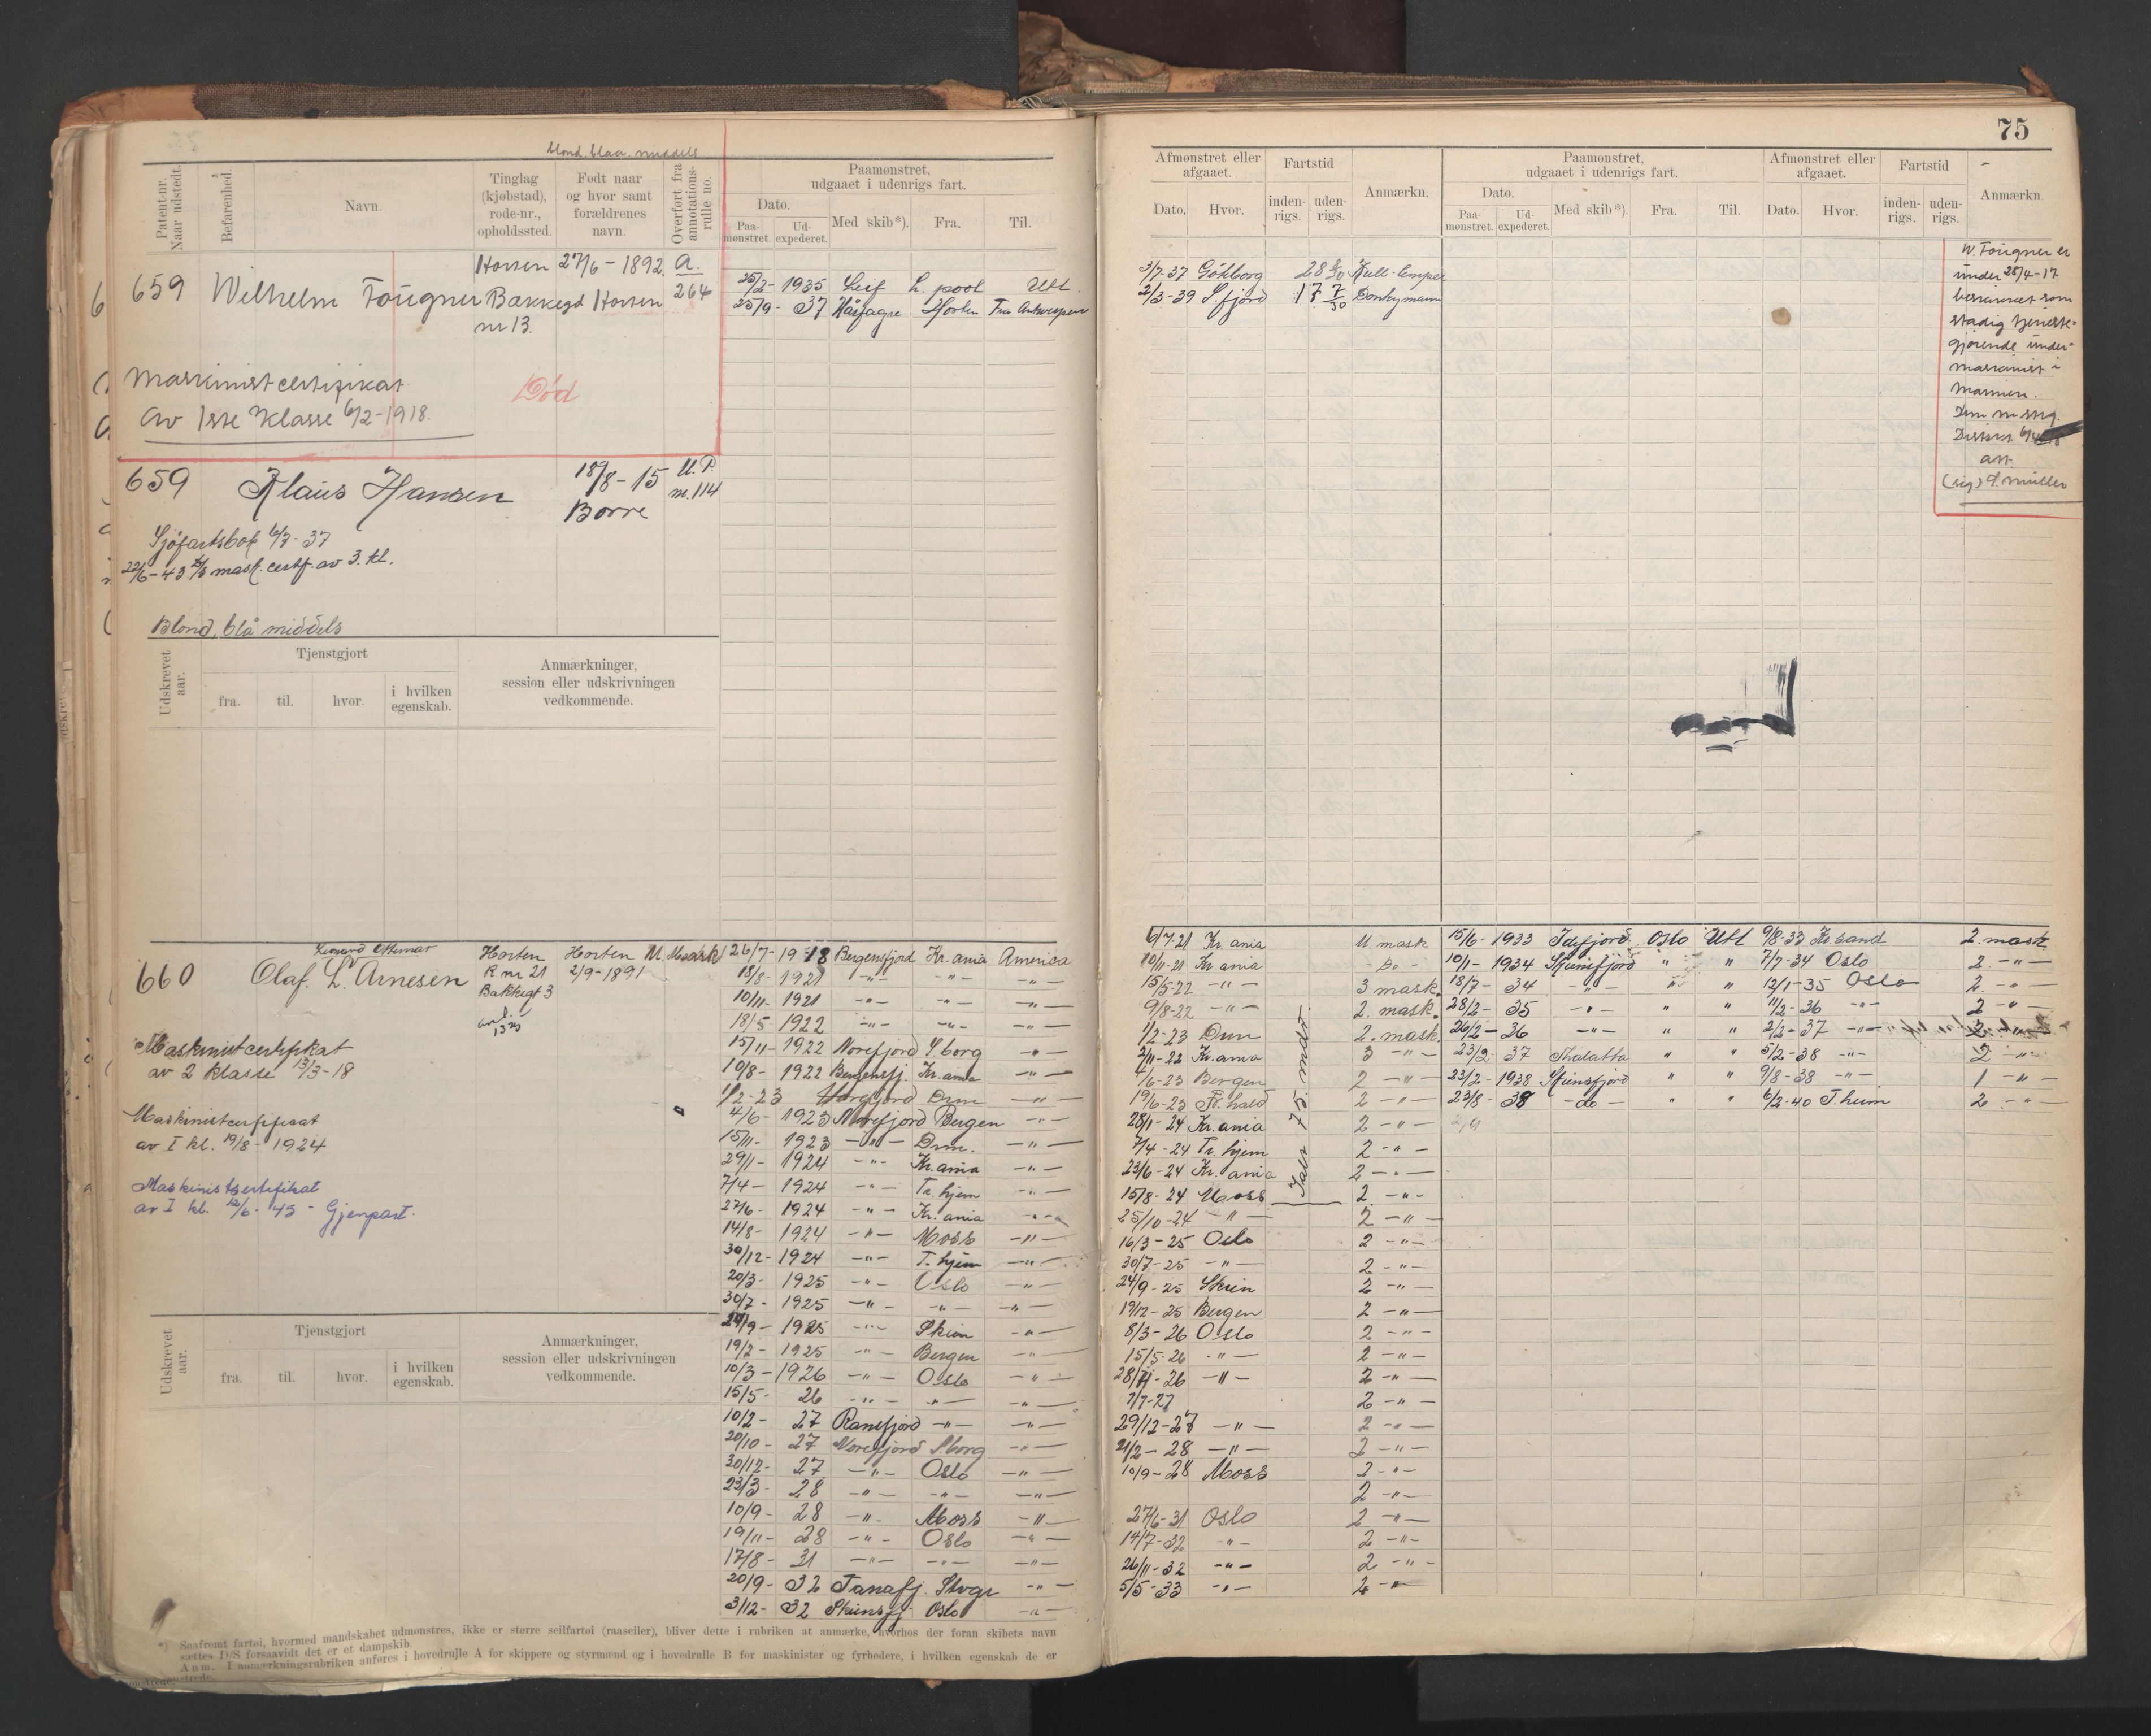 75
blond. blaa. middels
Patent-nr. Naar udstedt.
Befarenhed.
Navn.
Tinglag (kjøbstad), rode-nr., opholdssted.
Født naar og hvor samt forældrenes navn.
Overført fra annotations-rulle no.
Paamønstret, udgaaet i udenrigs fart.
Dato.
Paa-mønstret.
Ud-expederet.
Med skib*).
Fra.
Til.
Afmønstret eller afgaaet.
Dato.
Hvor.
Fartstid
inden-rigs.
uden-rigs.
Anmærkn.
Paamønstret, udgaaet i udenrigs fart.
Dato.
Paa-mønstret.
Ud-expederet.
Med skib*).
Fra.
Til.
Afmønstret eller afgaaet.
Dato.
Hvor.
Fartstid
inden-rigs.
uden-rigs.
Anmærkn.
659 Wilhelm Fougner
Horten
Bakkegd
nr 13.
27/6 - 1892
Horten
A.
264
Maskinistcertifikat
av 1ste Klasse 6/2-1918.
Død
25/2- 1935 Leif L. pool Utl.
25/9- 37 Hårfagre Horten Fra Antwerpen
3/7-37 Göthborg 28 Kull-lemper
2/3-39 S. fjord 17 7/30 Donkymann
W. Fougner er
under 25/4-17
beskikket som
stadig tjeneste-
gjørende under-
maskinist i
Marinen.
659 Klaus Hansen
18/8-15
Borre
U.P.
nr. 114
Sjøfartsbok 6/7-37
22/6-43 mask. certf. av 3. kl.
Blond, blå middels
Udskrevet aar.
Tjenstgjort
fra.
til.
hvor.
i hvilken egenskab.
Anmærkninger, session eller udskrivningen vedkommende.
Leonard Othmar
660 Olaf. L. Arnesen
Horten
R nr 21
Bakkegt 3
Horten
2/9-1891
U. Mask
Maskinistcertifikat
av 2 klasse 13/3-18
Maskinistcertifikat
av I kl. 19/8-1924
Maskinistsertifikat
av I kl. 12/6-45 - Gjenpart.
26/7-1918 Bergensfjord Kr. ania America
18/8-1921 -"- -"- -"-
10/11-1921 -"- -"- -"-
18/5-1922 -"- -"- -"-
15/11-1922 Norefjord S. borg -"-
10/8-1922 Bergensfj. Kr. ania -"-
1/2-23 Norefjord Drm -"-
4/6-1923 Norefjord Bergen -"-
15/11-1923 -"- Drm. -"-
29/1-1924 -"- Kr. ania -"-
7/4-1924 -"- Tr. hjem -"-
27/6-1924 -"- Kr. ania -"-
14/8-1924 -"- Moss -"-
30/12-1924 -"- T. hjem -"-
20/3-1925 -"- Oslo -"-
30/7-1925 -"- -"- -"-
24/9-1925 -"- Skien -"-
19/2-1925 -"- Bergen -"-
10/3-1926 -"- Oslo -"-
15/5- 26 -"- -"- -"-
10/2- 27 Ranefjord -"- -"-
20/10- 27 Norefjord S borg -"-
30/12- 27 -"- Oslo -"-
23/3- 28 -"- -"- -"-
10/9- 28 -"- Moss -"-
19/11- 28 -"- Oslo -"-
17/8- 31 -"- -"- -"-
20/9- 32 Tanafj. Stvgr -"-
3/12- 32 Skiensfj. Oslo -"-
6/7-21 Kr. ania U. mask
10/11-21 Kr ania - Do -
15/5-22 -"- 3 mask.
9/8-22 -"- 2. mask.
1/2-23 Drm 2. mask
2/11-22 Kr. ania 3 -"-
4/6-23 Bergen 2 -"-
19/6-23 Fr. hald 2 -"-
28/1-24 Kr. ania 2 -"-
7/4-24 Tr. hjem 2 -"-
23/6-24 Kr. ania 2 -"-
15/8-24 Moss 2 -"-
Ialt 75 mdr.
25/10-24 -"- 2 -"-
16/3-25 Oslo 2 -"-
30/7-25 -"- 2 -"-
24/9-25 Skien 2 -"-
19/12-25 Bergen 2 -"-
8/3-26 Oslo 2 -"-
15/5-26 -"- 2 -"-
28/11-26 -"- 2 -"-
7/7-27 2 -"-
29/12-27 -"- 2 -"-
21/2-28 -"- 2 -"-
10/9-28 Moss 2 -"-
2 -"-
27/6-31 Oslo 2 -"-
14/7-32 -"- 2 -"-
26/11-32 -"- 2 -"-
5/5-33 -"- 2 -"-
15/6-1933 Idefjord Oslo Utl 9/8-33 Kr. sand 2. mask
10/1-1934 Skiensfjord " " 7/7-34 Oslo 2. -"-
18/7-34 -"- " " 12/1-35 Oslo 2. -"-
28/2-35 -"- " " 11/2-36 -"- 2 -"-
26/2-36 -"- " " 2/2-37 -"- 2. -"-
23/2-37 Thalatta " " 5/2-38 -"- 2 -"-
23/2-1938 Skiensfjord " " 9/8-38 -"- 1 -"-
23/8-38 -do- " " 6/2-40 T. heim 2. -"-
Udskrevet aar.
Tjenstgjort
fra.
til.
hvor.
i hvilken egenskab.
Anmærkninger, session eller udskrivningen vedkommende.
*) Saafremt fartøi, hvormed mandskabet udmønstres, ikke er større seilfartøi (raaseiler), bliver dette i rubriken at anmærke, hvorhos der foran skibets navn
sættes D/S forsaavidt det er et dampskib.
Anm. I anmærkningsrubriken anføres i hovedrulle A for skippere og styrmænd og i hovedrulle B for maskinister og fyrbødere, i hvilken egenskab de er